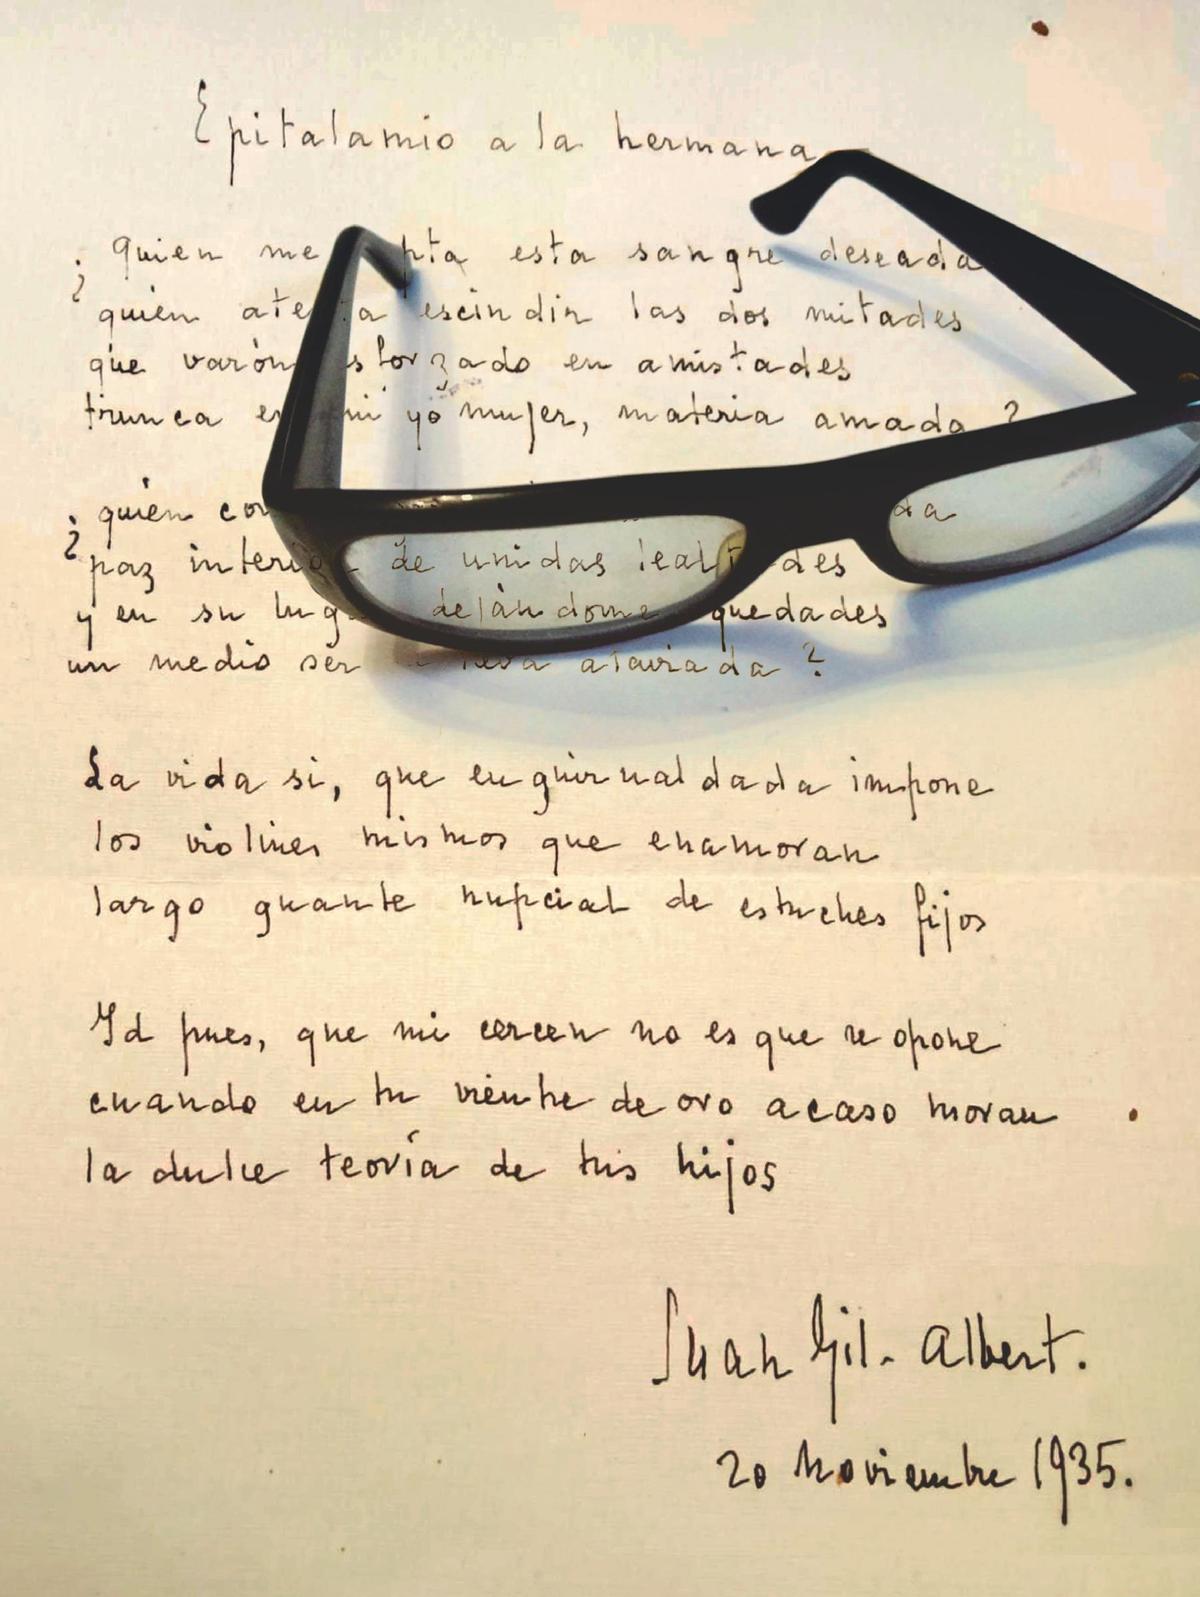 Epitalamio a la hermana
¿Quien me pta esta sangre deseada
quién ate a escindir las dos mitades
que varón sforzado en amistades
trunca en mi yo mujer, materia amada?
¿quién con da
paz interior de unidas lealtades
y en su lug dejándome quedades
un medio ser ataviada?
La vida si, que enguirnaldada impone
los violines mismos que enamoran
largo guante nupcial de estuches fijos
Id pues, que mi cercen no es que se opone
cuando en tu vientre de oro acaso moran
la dulce teoría de tus hijos
Juan Gil-Albert.
20 Noviembre 1935.